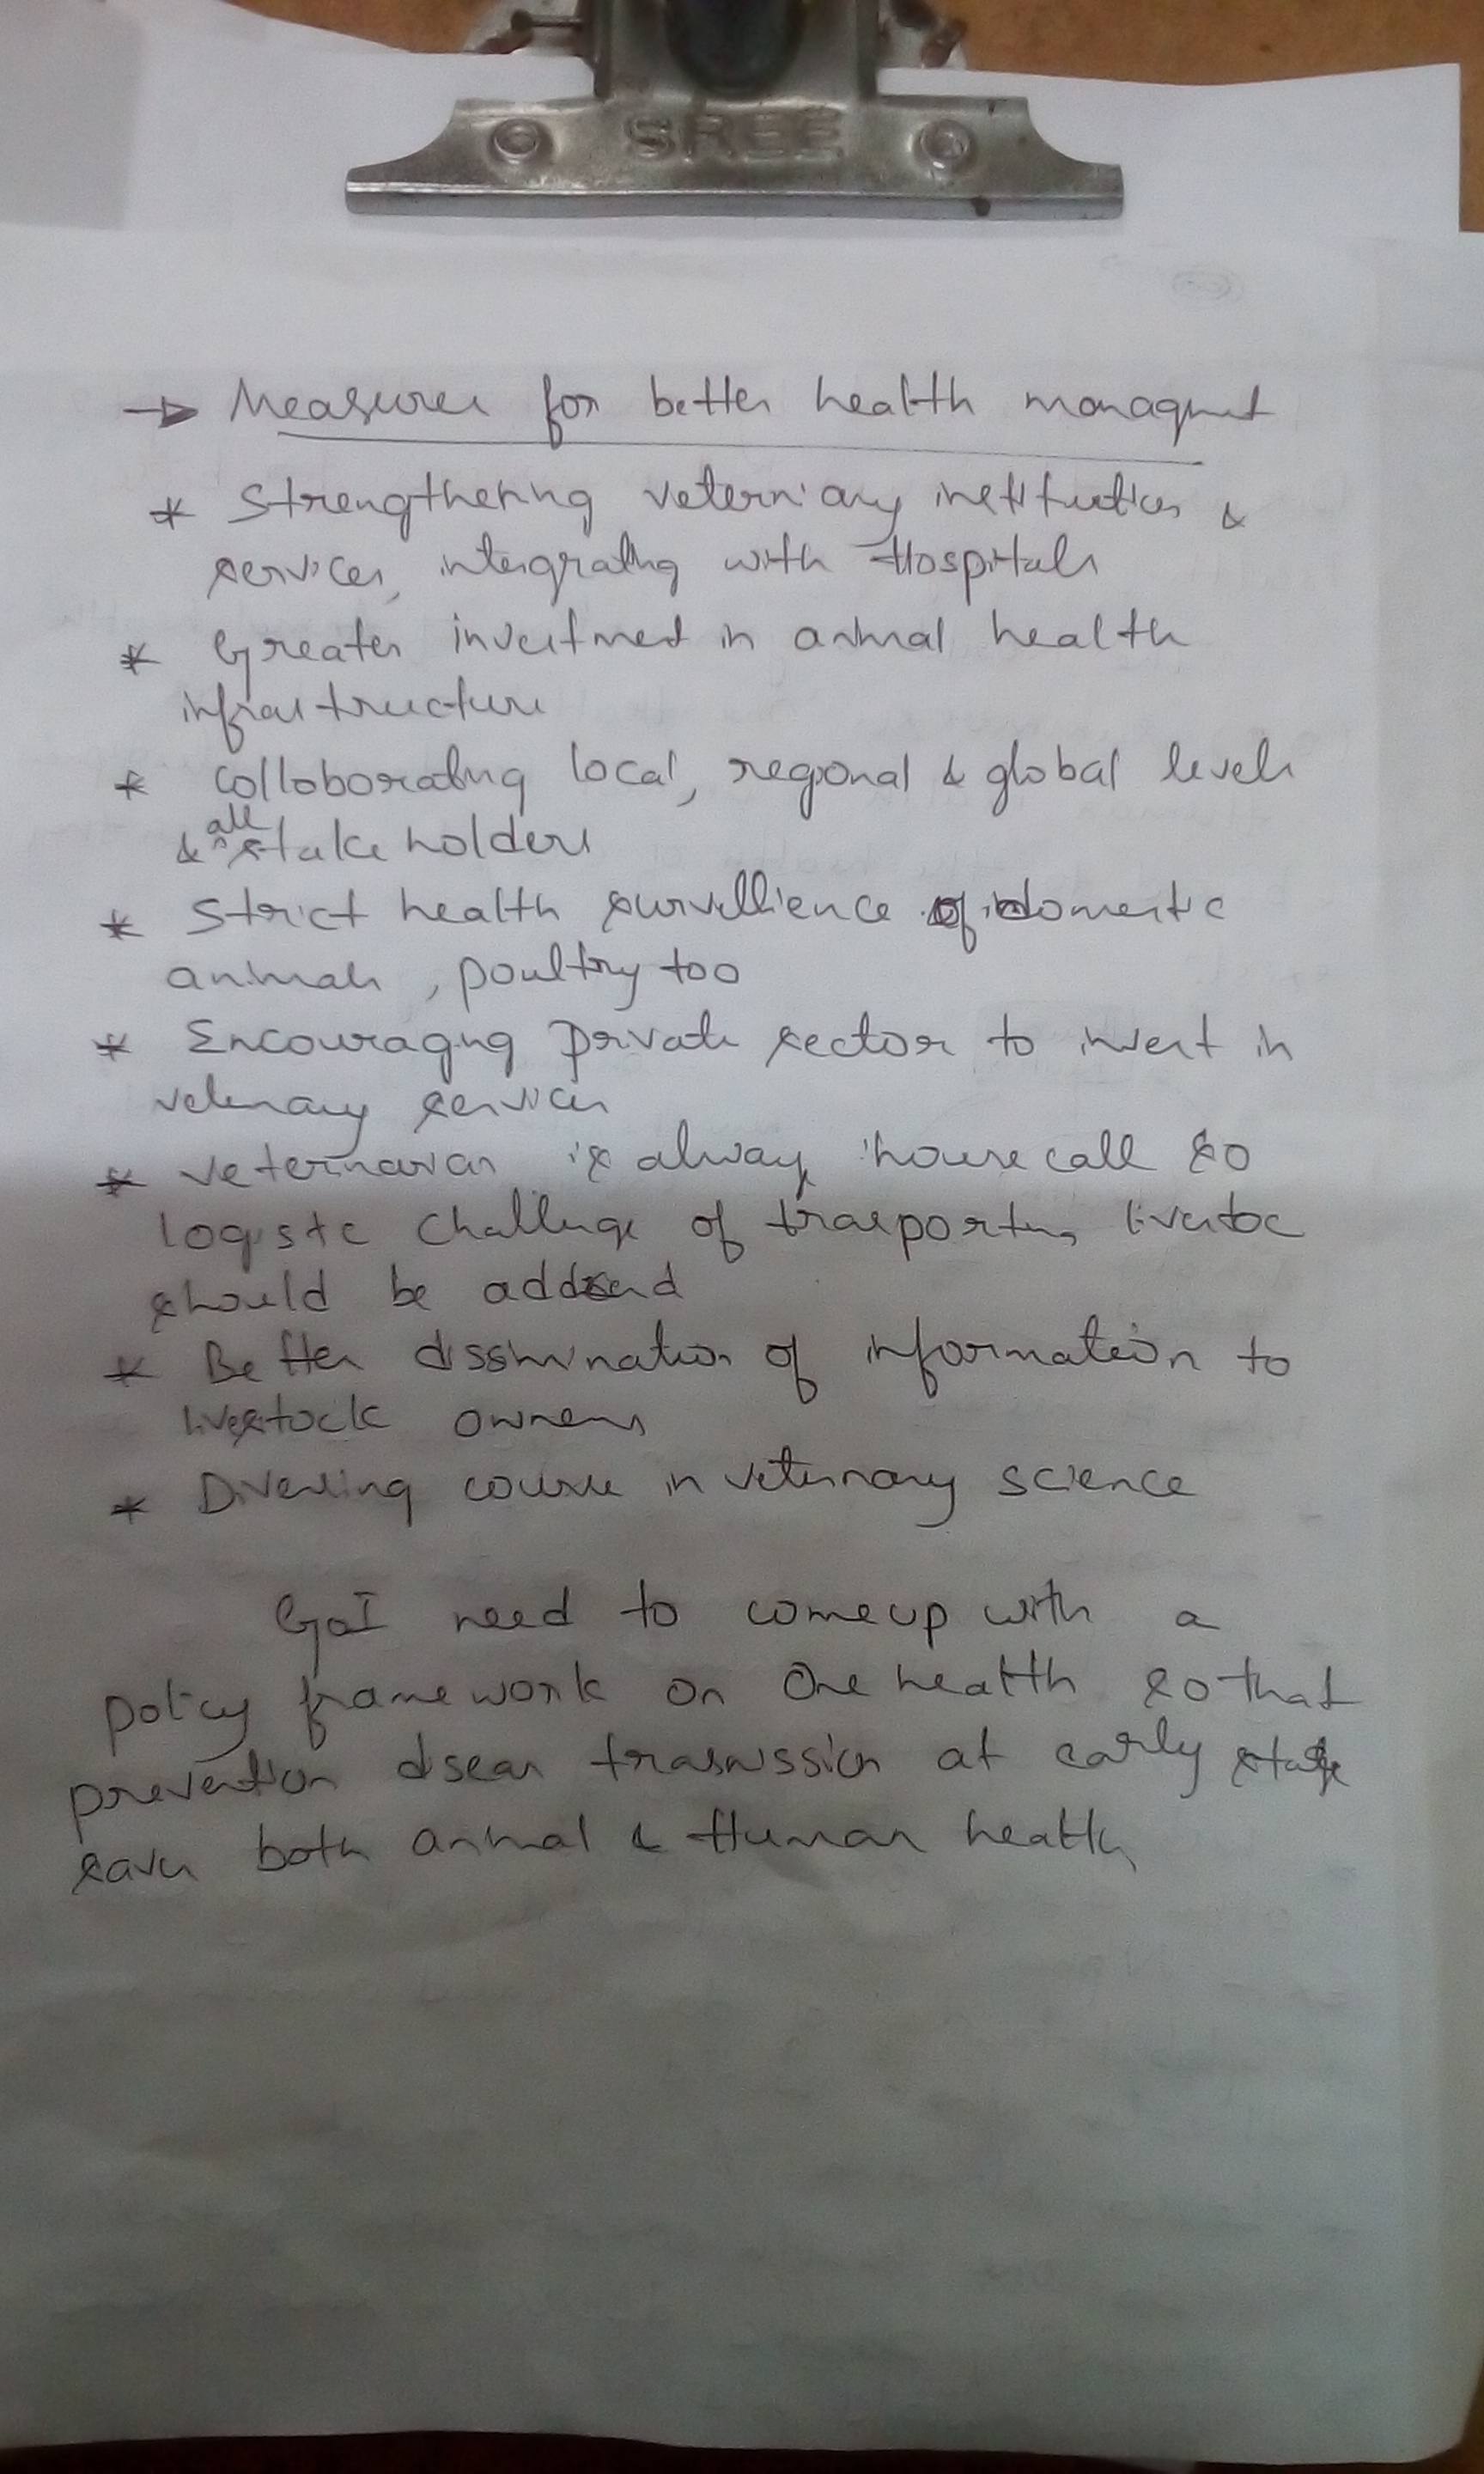 SREE
→ Measures for better health managmet
* Strengthening veterniary institution &
services, intergrating with Hospitals
* Greater investment in animal health
infrastructure
* Colloborating local, regional & global levels
& all stake holders
* Strict health survellience of domestic
animals, poultry too
* Encouraging private sector to invest in
vetenary services
* veternarian is always house call so
logistc challenge of trasporting livestoc
should be
* Better dissmination of information to
livestock owners
* course in veternary science
GoI need to comeup with a
policy framework on One health so that
prevention disease trasmission at early stage
saves both animal & Human health